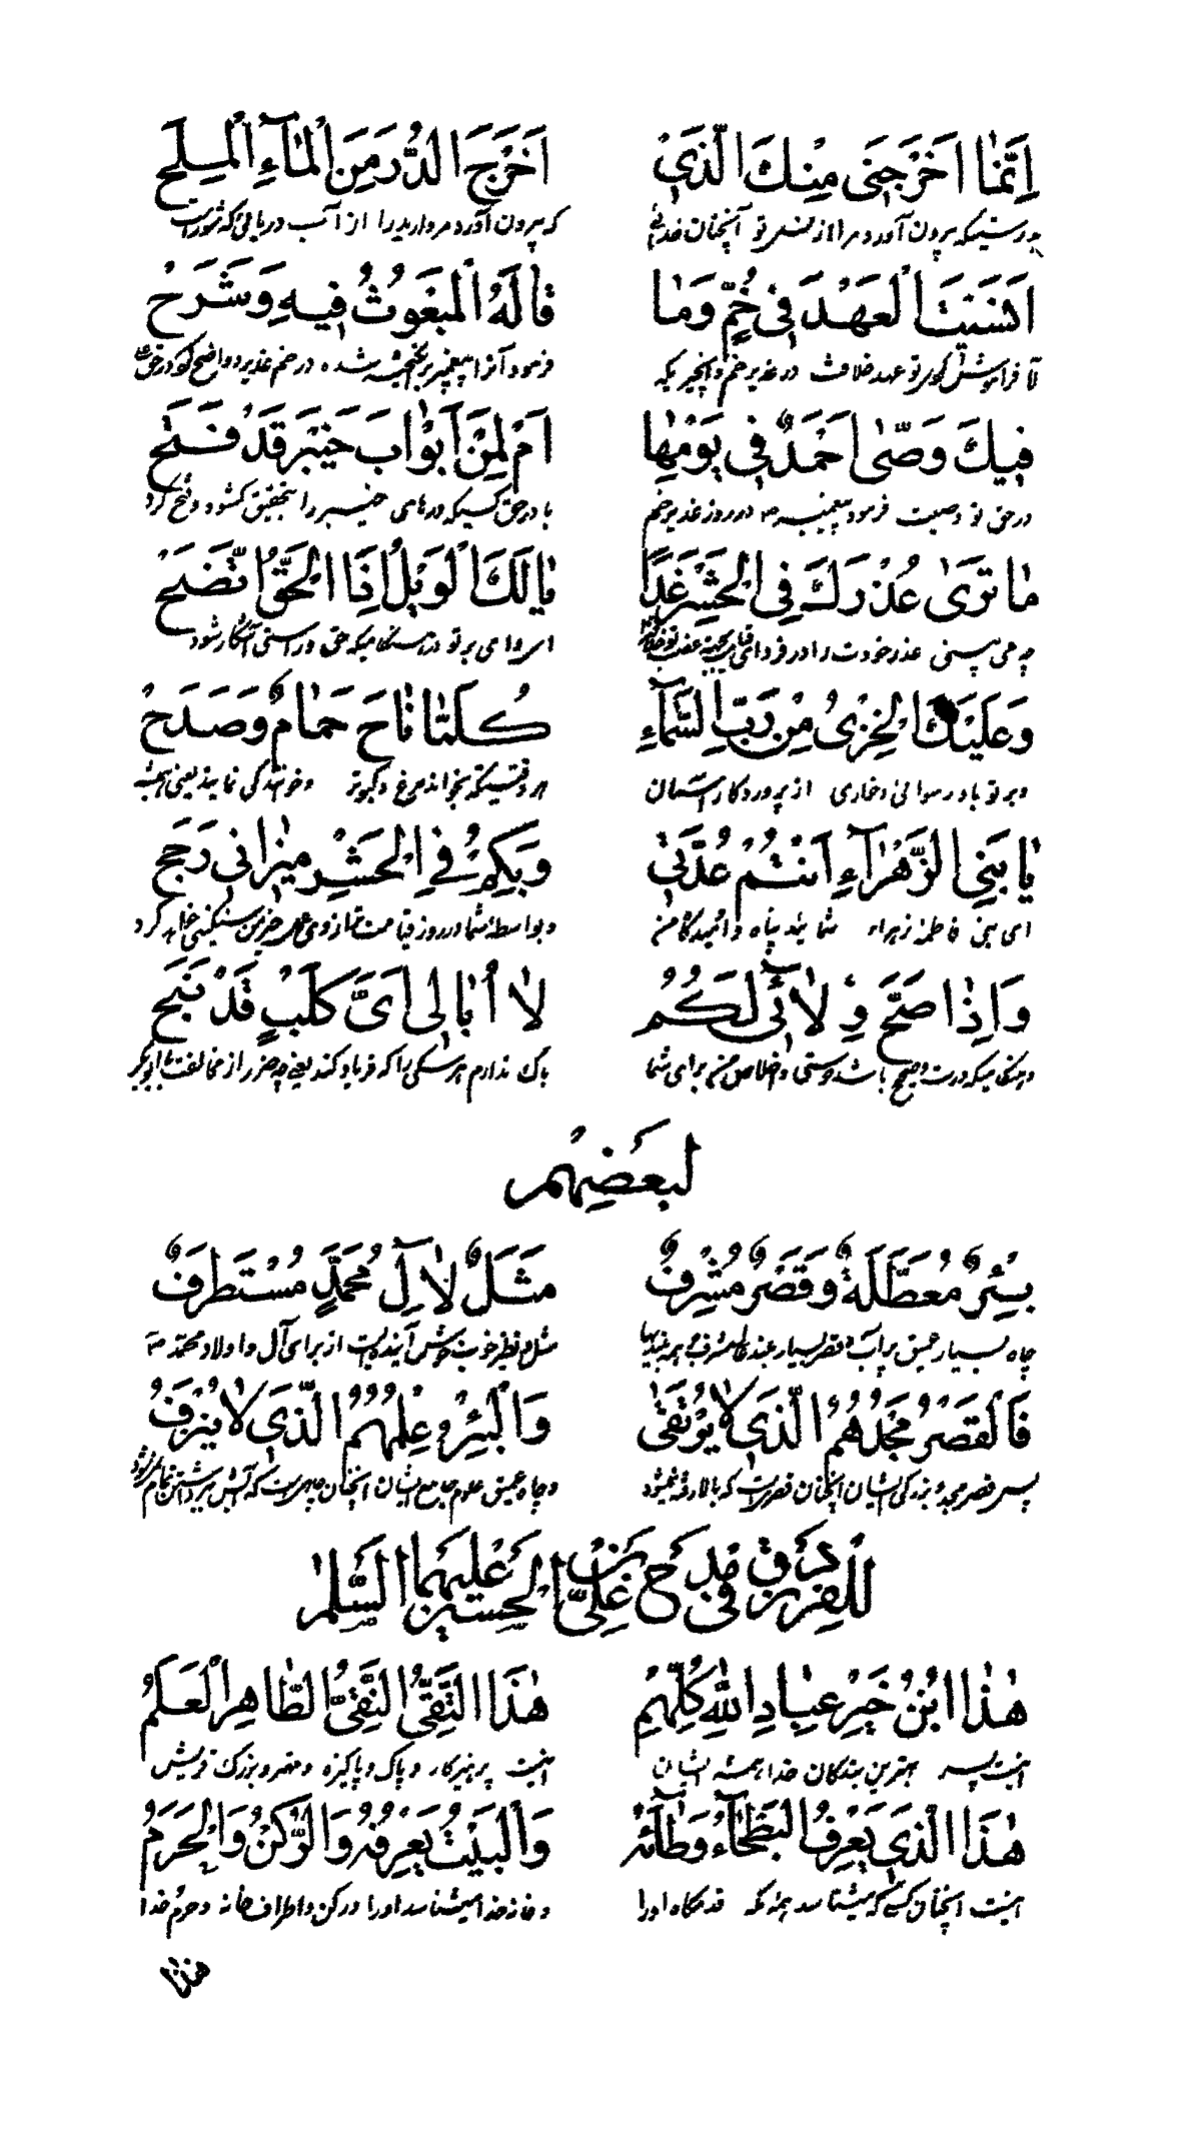 اِنَّمٰا اَخْرَجَنی مِنْكَ الَّذی اَخْرَجَ الدُّرَ مِنَ الْمٰآءِ الْمِلَح
بدرستیکه بیرون آورد مرا از تو آنچنان خدائی که بیرون آورد مروارید را از آب دریائی که شور است
اَنَسَیْتَ الْعَهْدَ فی خُمٍّ وَمٰا قٰالَهُ الْمَبْعُوثُ فیهِ وَشَرَحْ
آیا فراموش تو عهد خلافت در غدیر خم و آنچیزیکه فرمود آنرا پیغمبر شده در خم غدیر و واضح
فیكَ وَصّىٰ اَحْمَدٌ فی یَوْمِهٰا اَمْ لِمَنْ اَبْوٰابَ خَیْبَرَ قَدْ فَتَحْ
در حق تو وصیت فرمود پیغمبر ص در روز غدیر خم یا در حق کسیکه درهای خیبر را بتحقیق کشود و فتح کرد
مٰا تَرَىٰ عُذْرَكَ فِی الْحَشْرِ غَدًا یٰا لَكَ الْوَیْلُ اِذَا الْحَقُّ اتَّضَحْ
چه می بینی عذر خودت را در فردای ای وای بر تو هنگامیکه حق و راستی آشکار شود
وَعَلَیْكَ الْخِزْیُ مِنْ رَبِّ السَّمٰآءِ كُلَّمٰا نٰاحَ حَمٰامٌ وَصَدَحْ
و بر تو باد رسوائی و خاری از پروردکار آسمان هر وقتیکه بخواند مرغ و کبوتر و خوانندکی نماید یعنی همیشه
یٰا بَنِی الزَّهْرٰآءِ اَنْتُمْ عُدَّتی وَبِكُمْ فِی الْحَشْرِ میزٰانی رَجَحْ
ای بنی فاطمه زهراء شمائید پناه و امیدگاه من و بواسطه شما در روز قیامت ترازوی سنکینی خواهد کرد
وَاِذٰا صَحَّ وِلٰآئی لَكُمُ لٰا اُبٰالی اَیَّ كَلْبٍ قَدْ نَبَحْ
و هنگامیکه درست و صحیح باشد دوستی و اخلاص من برای شما باك ندارم هر سکی را که فریاد کند یعنی چه ضرر از مخالفت
لِبَعْضِهِمْ
بِئْرٌ مُعَطَّلَةٌ وَقَصْرٌ مُشْرِفٌ مَثَلٌ لٰاِلِ مُحَمَّدٍ مُسْتَطْرَفٌ
چاه بسیار عمیق پر آب و قصر بسیار بلند مثل و نظیر خوب از برای آل و اولاد محمد ص
فَالْقَصْرُ مَجْدُهُمُ الَّذی لٰا یُرْتَقىٰ وَالْبِئْرُ عِلْمُهُمُ الَّذی لٰا یُنْزَفُ
پس قصر مجد و بزرکی ایشان آنچنان قصریست که بالا رفته نمیشود و چاه عمیق علوم ایشان آنچنان چاهیست که
لِلْفَرَزْدَقِ فی مَدْحِ عَلِیِّ بْنِ الْحُسَیْنِ عَلَیْهِمَا السَّلٰمُ
هٰذَا ابْنُ خَیْرِ عِبٰادِ اللّٰهِ كُلِّهِمِ هٰذَا التَّقِیُّ النَّقِیُّ الطّٰاهِرُ الْعَلَمُ
اینست پسر بهترین بندکان خدا همه ایشان اینست پرهیزکار و پاك و پاکیزه و مهتر و بزرك قریش
هٰذَا الَّذی یَعْرِفُ الْبَطْحٰآءُ وَطْاَتَهُ وَالْبَیْتُ یَعْرِفُهُ وَالرُّكْنُ وَالْحَرَمُ
اینست آنچنان کسی که میشناسد مکه قدمکاه او را و خانه خدا میشناسد او را و رکن و اطراف خانه و حرم خدا
هٰذٰا